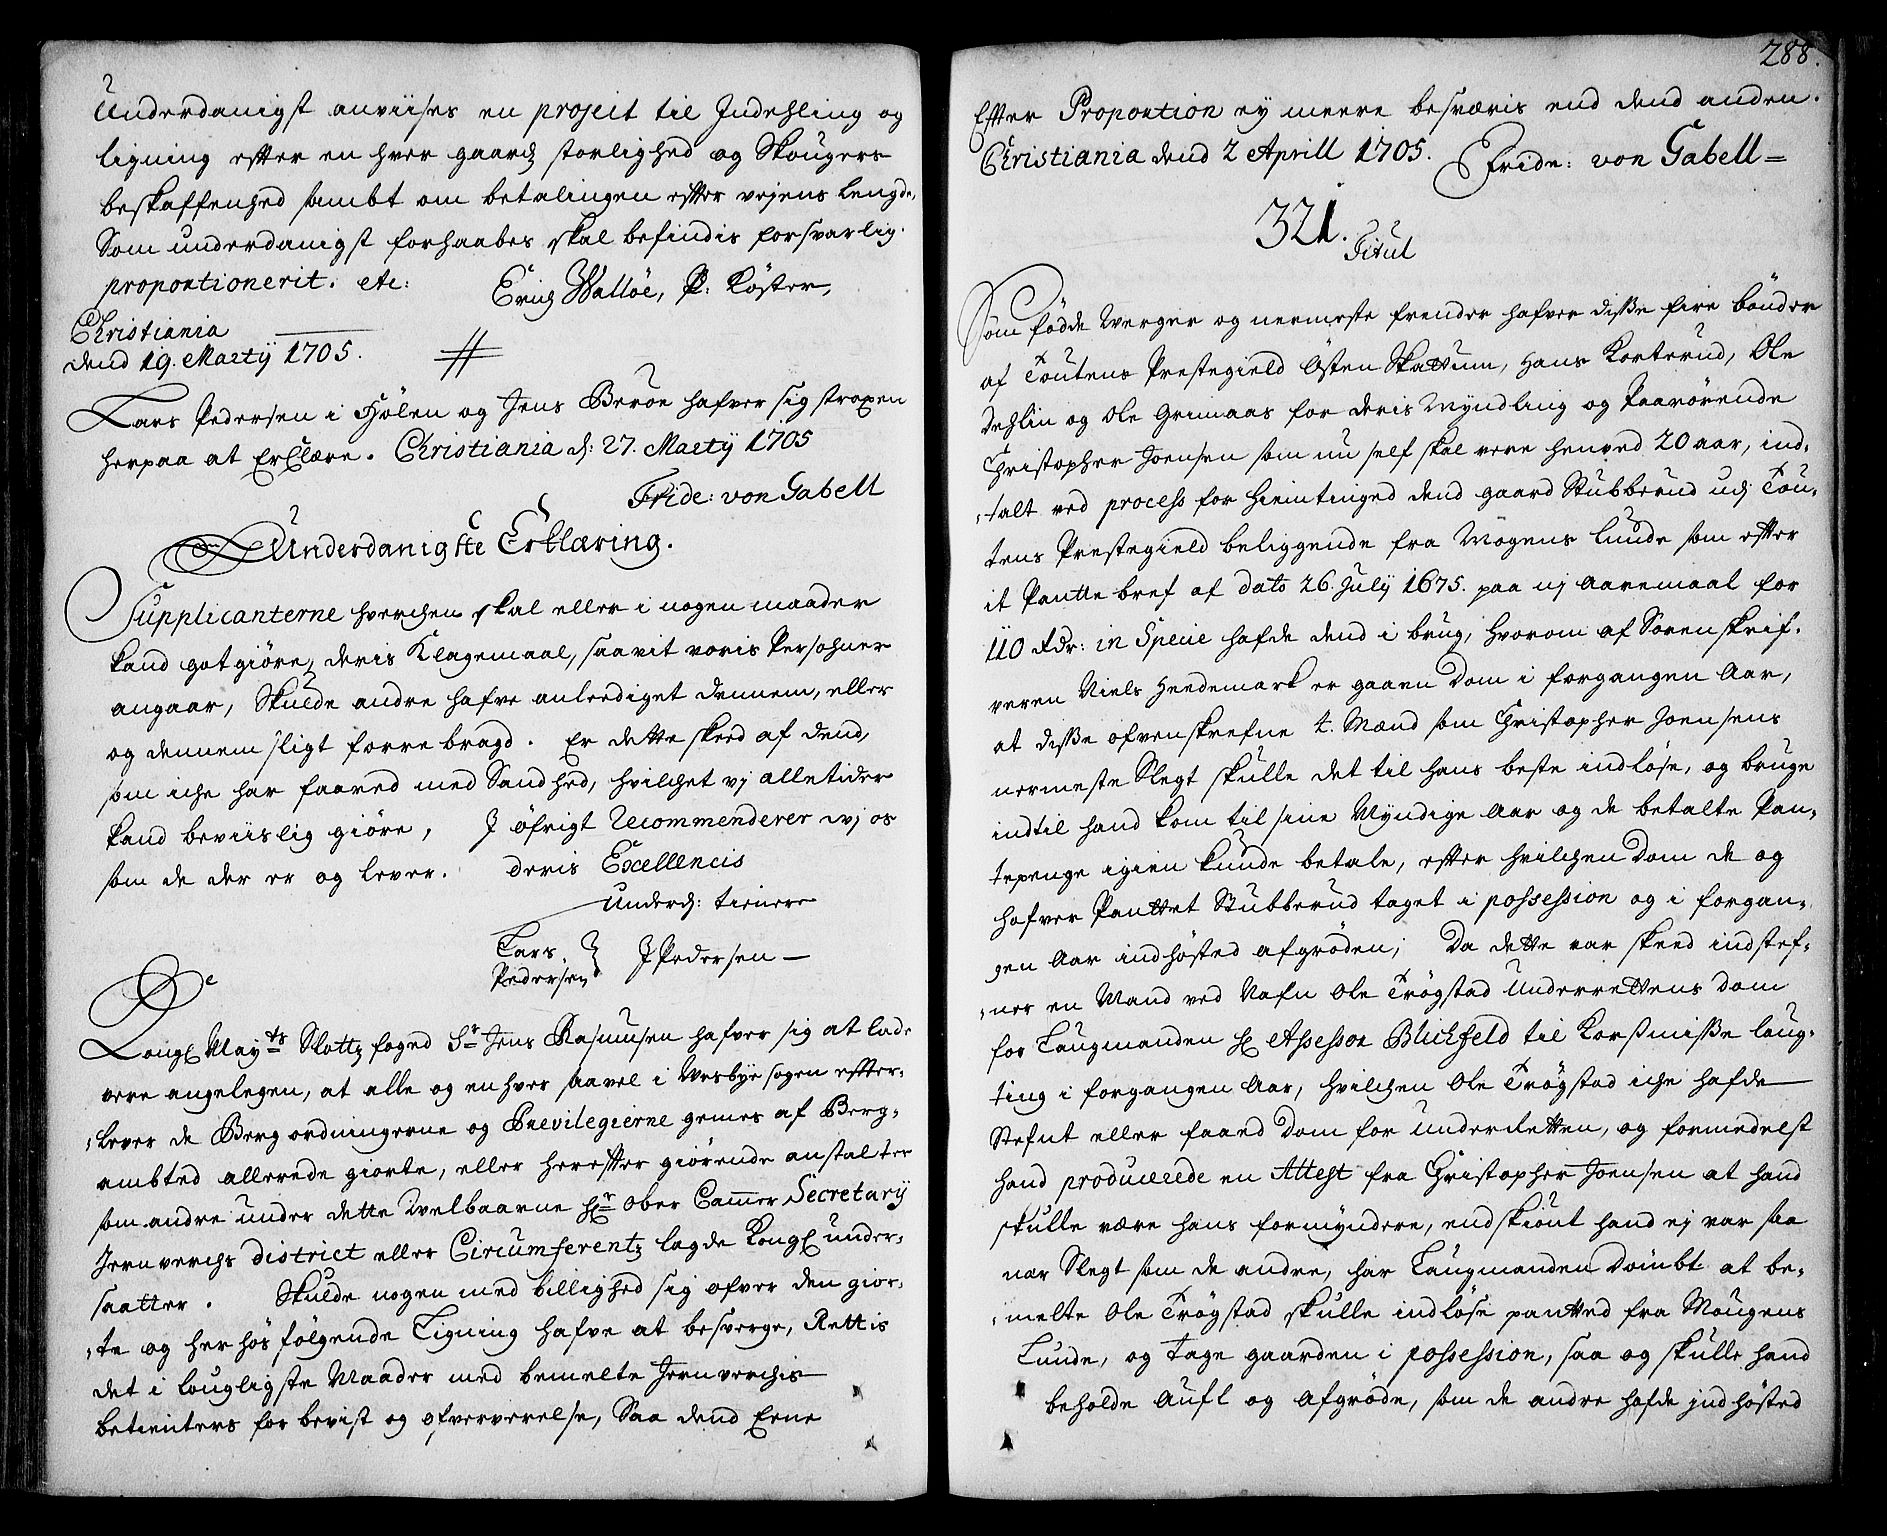 Underdanigst anviises en project til Indehling og
ligning efter en hver gaards storlighed og Skougers
beskaffenhed sambt om betalingen efter vejens lengde,
Som underdanigst forhaabes skal befindis forsvarlig
proportionerit. etc: Erich Walløe, P: Köster,
Christiania
dend 19. Martij 1705.
Lars Pedersen i Hölen og Jens Beroe hafver sig strapen
herpaa at Erclære. Christiania d: 27. Martij 1705
Fride: von Gabell
Underdanigste Erklæring.
Supplicanterne hverchen skal eller i nogen maader
kand gotgiöre, deris Klagemaal, saavit voris Persohner
angaar, Skulde andre hafve anleediget dennem, eller
og dennem sligt forre bragd. Er dette skeed af dend,
som iche har faared med Sandhed, hvilchet vj alletider
kand beviislig giöre, J öfrigt Recommenderer wj os
som de der er og lever. deris Excellencis
Underd: tienere
Lars Pedersen J Pedersen
De
Kongl May.ts Slotts foged Sr Jens Rasmusen hafver sig at lade
vere angelegen, at alle og en hver saavel i Wesbye sogen effter-
lever de Berg ordningerne og Previlegierne gemes af Berg-
ambted allerede giorte, eller herefter giörende anstalter
som andre under dette Welbaarne Hr Ober Cammer Secretary
Jernverchs district eller Circumferentz lagde Kongl under-
saatter. Skulde nogen med billighed sig ofver den gior-
te og her hös fölgende Ligning hafve at besverge, Rettis
det i lougligste Maader med bemelte Jernverchis
betienters for bevist og ofververelse, Saa dend Eene
288.
Efter Proportion ey meere besværis end dend anden.
Christiania dend 2 Aprill 1705. Fride: von Gabell
321.
Titul
Som födde Werger og nermeste frender hafver diße fire bönder
af Toutens Prestegield Östen Skattum, Hans Korterud, Ole
Dehlin og Ole Grimaas for deris Myndling og Paarörende
Christopher Joensen som nu self skal vere henved 20 aar, ind-
talt ved process for Hiemtinged dend gaard Stubberud udj Tou-
tens Prestegield beliggende fra Mogens Lunde som efter
it Pantte bref af dato 26. July 1675. paa nj aaremaal for
110 Rdr: in Specie hafde dend i brug, Hvorom af Sorenskrif-
veren Niels Heedemark er gaaen Dom i forgangen Aar,
at diße ofvenskrefne 4. Mænd som Christopher Joensens
nermeste Slegt skulle det til hans beste indlöse, og bruge
indtil hand kom til sine Myndige Aar og de betalte Pan-
tepenge igien kunde betale, efter hvilchen Dom de og
hafver Panttet Stubberud taget i possession og i forgan-
gen Aar indhösted afgröden; Da dette var skeed indstef-
ner en Mand ved Nafn Ole Trögstad Underrettens dom
for Laugmanden Hr Assessor Blichfeld til Korsmiße laug-
ting i forgangen Aar, hvilchen Ole Trögstad iche hafde
Stefnt eller faaed Dom for Underretten, og formedelst
hand producerede en Attest fra Christopher Joensen at hand
skulle være hans formyndere, endskiönt hand ej var saa
nær Slegt som de andre, har Laugmanden dömbt at be-
melte Ole Trögstad skulle indlöse pantted fra Mougens
Lunde, og tage gaarden i possession, saa og skulle hand
beholde Aufl og Afgröde, som de andre hafde jnd hösted